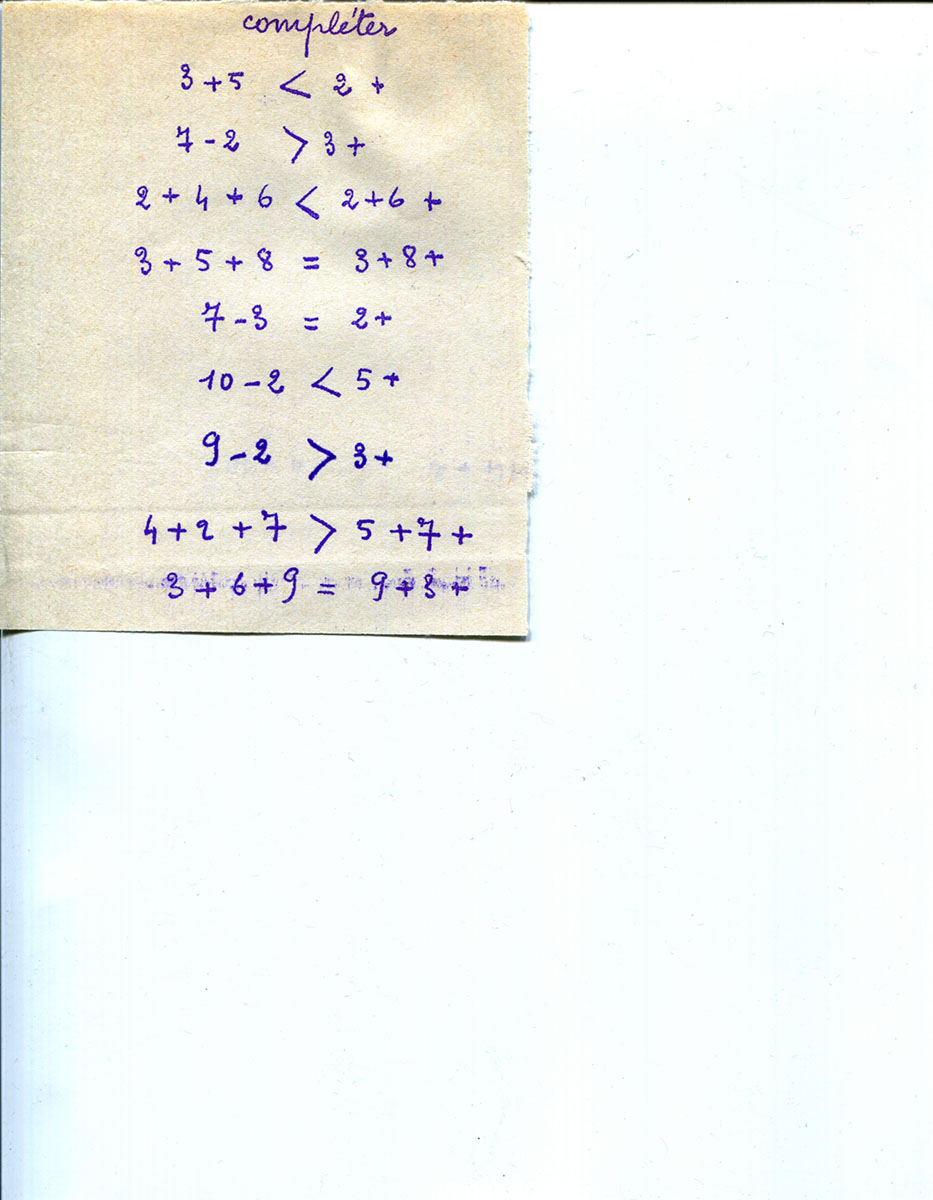 compléter
3 + 5 < 2 +
7 - 2 > 3 +
2 + 4 + 6 < 2 + 6 +
3 + 5 + 8 = 3 + 8 +
7 - 3 = 2 +
10 - 2 < 5 +
9 - 2 > 3 +
4 + 2 + 7 > 5 + 7 +
3 + 6 + 9 = 9 + 3 +